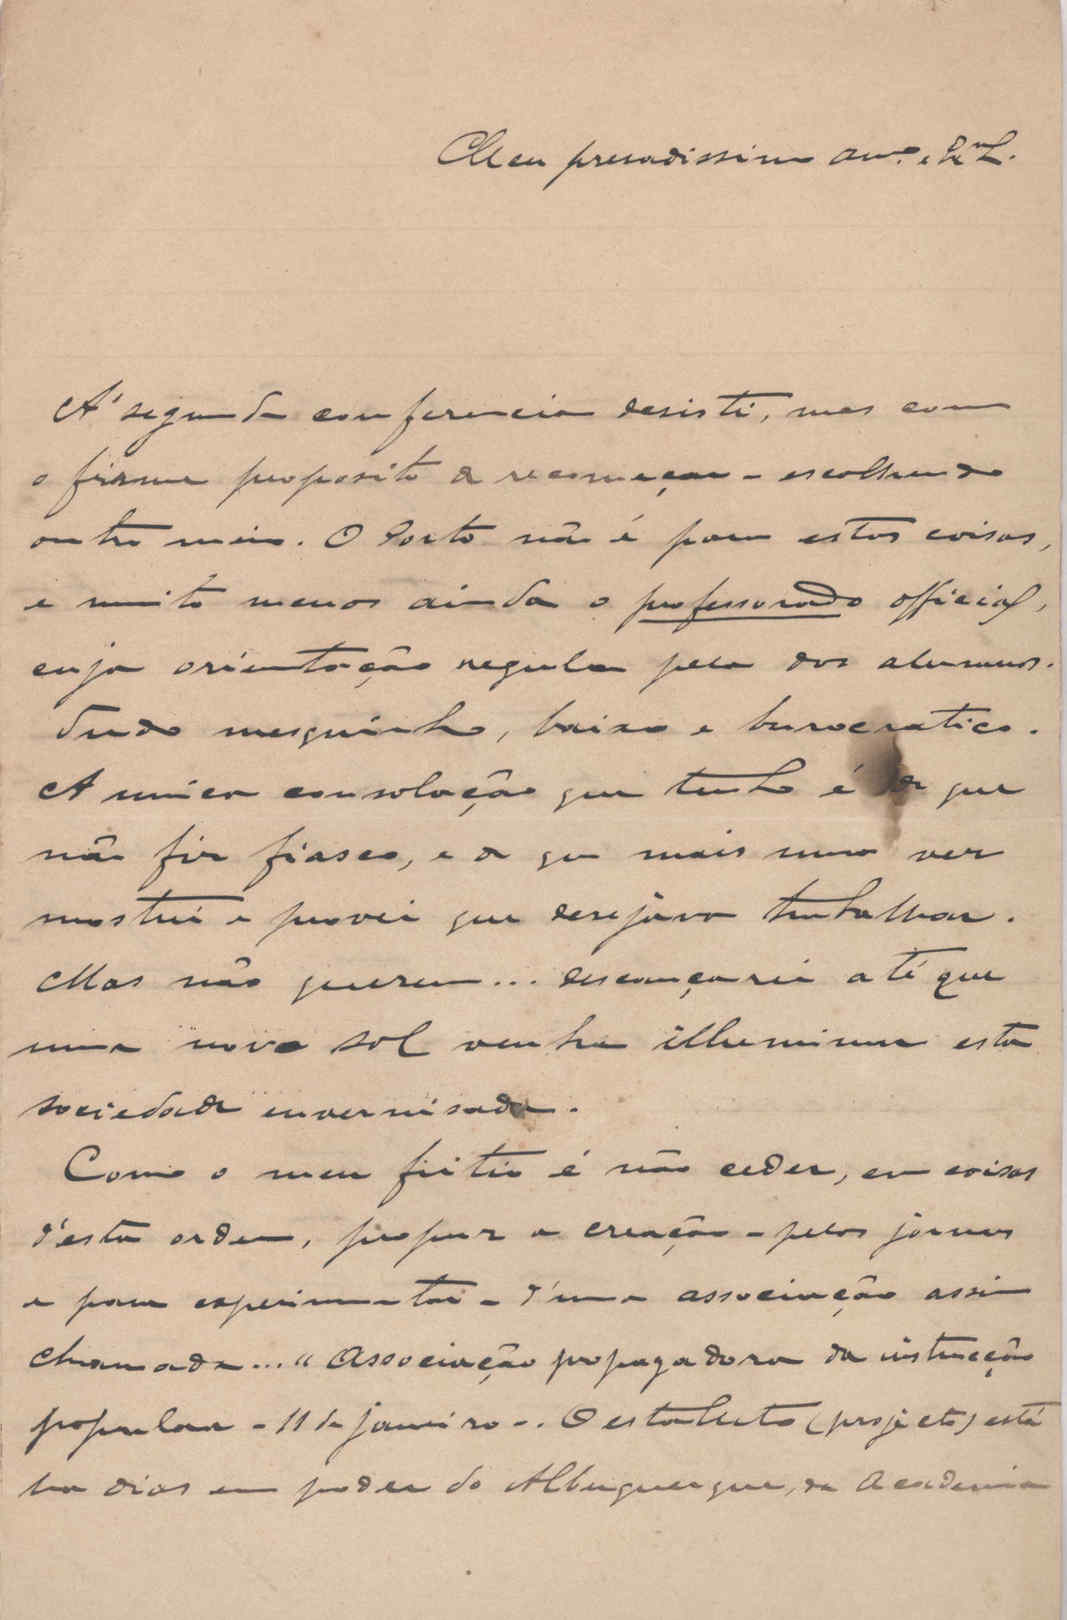 Meu presadissimo am.º e
A' segunda conferencia desisti, mas com
o firme proposito de recomeçar - escolhendo
outro meio. O Porto não é para estas coisas,
e muito menos ainda o professorado official,
cuja orientação regula pela dos alumnos.
Tudo mesquinho, baixo e burocratico.
A unica consolação que tenho é de que
não fiz fiasco, e de que mais uma vez
mostrei e provei que desejava trabalhar.
Mas não querem... descançarei até que
um novo sol venha illuminar esta
sociedade envernisada.
Como o meu feitio é não ceder, em coisas
d'esta ordem, propuz a creação - pelos jornaes
e para experimentar - d'uma associação assim
chamada... "Associação propagadora da instrucção
popular - 11 de janeiro -. O estatuto (projecto) está
ha dias em poder do Albuquerque, da Academia